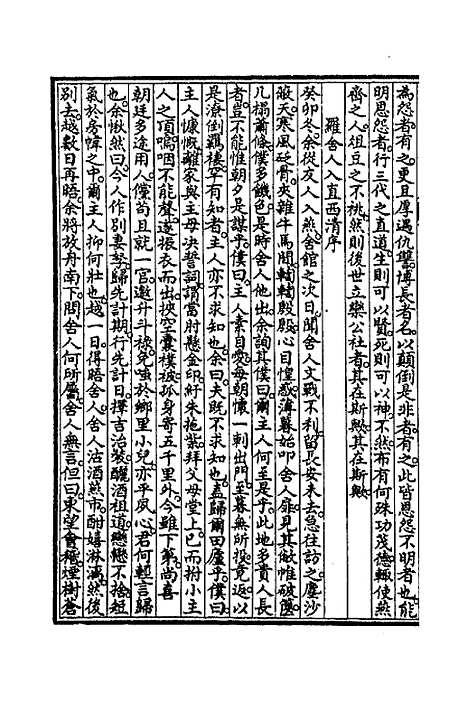 為怨者有之更且厚遇仇讐博長者名以顛倒是非者有之此皆恩怨不明者也能
明恩怨者行三代之直道生則可以賢死則可以神不然布有何殊功茂德輙使燕
齊之人俎豆之不祧然則後世立欒公社者其在斯歟其在斯歟
羅舍人入直西清序
癸卯冬余從友人入燕舍館之次日聞舍人文戰不利留長安未去急往訪之塵沙
蔽天寒風砭骨夾雜牛馬間轔轔殷殷心目惶惑薄暮始叩舍人扉見其敝帷破簏
几榻蕭條僕多饑色是時舍人他出余詢其僕曰爾主人何至是乎此地多貴人長
者豈不能惟朝夕是謀乎僕曰主人素自愛每朝懷一刺出門至暮無所投竟返以
是潦倒羈棲罕有知者主人亦不求知也余曰夫既不求知也盍歸爾田廬乎僕曰
主人慷慨離家與主母決誓詞謂當肘懸金印紆朱拖紫拜父母堂上已而拊小主
人之頂嗚咽不能聲遂振衣而出挾空囊襆被孤身寄五千里外今雖下第尚喜
朝廷多途用人儻苟且就一官邀升斗祿多嗤於鄉里小兒亦乎夙心君何輕言歸
也余愀然曰今人作別妻孥歸先計期行先計日擇吉治裝釃酒祖道戀戀不捨短
氣於房幃之中爾主人抑何壯也越一日得晤舍人舍人沽酒燕市酣嬉淋漓然後
別去越數日再晤余將放舟南下問舍人何所屬舍人無言但曰東望會稽煙樹蒼